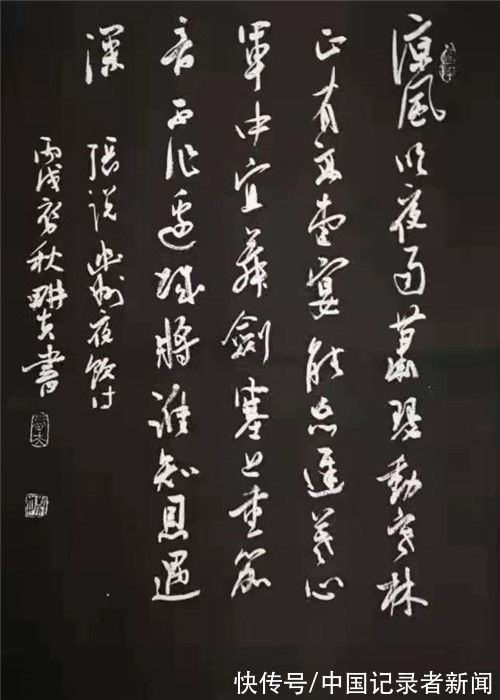 涼風吹夜雨蕭瑟動寒林
正有高堂宴能忘遲暮心
軍中宜舞劍塞上重笳
音不作邊城將誰知恩遇
深
張說幽州夜飲詩
丙戌初秋畊夫書
快传号/中国记录者新闻